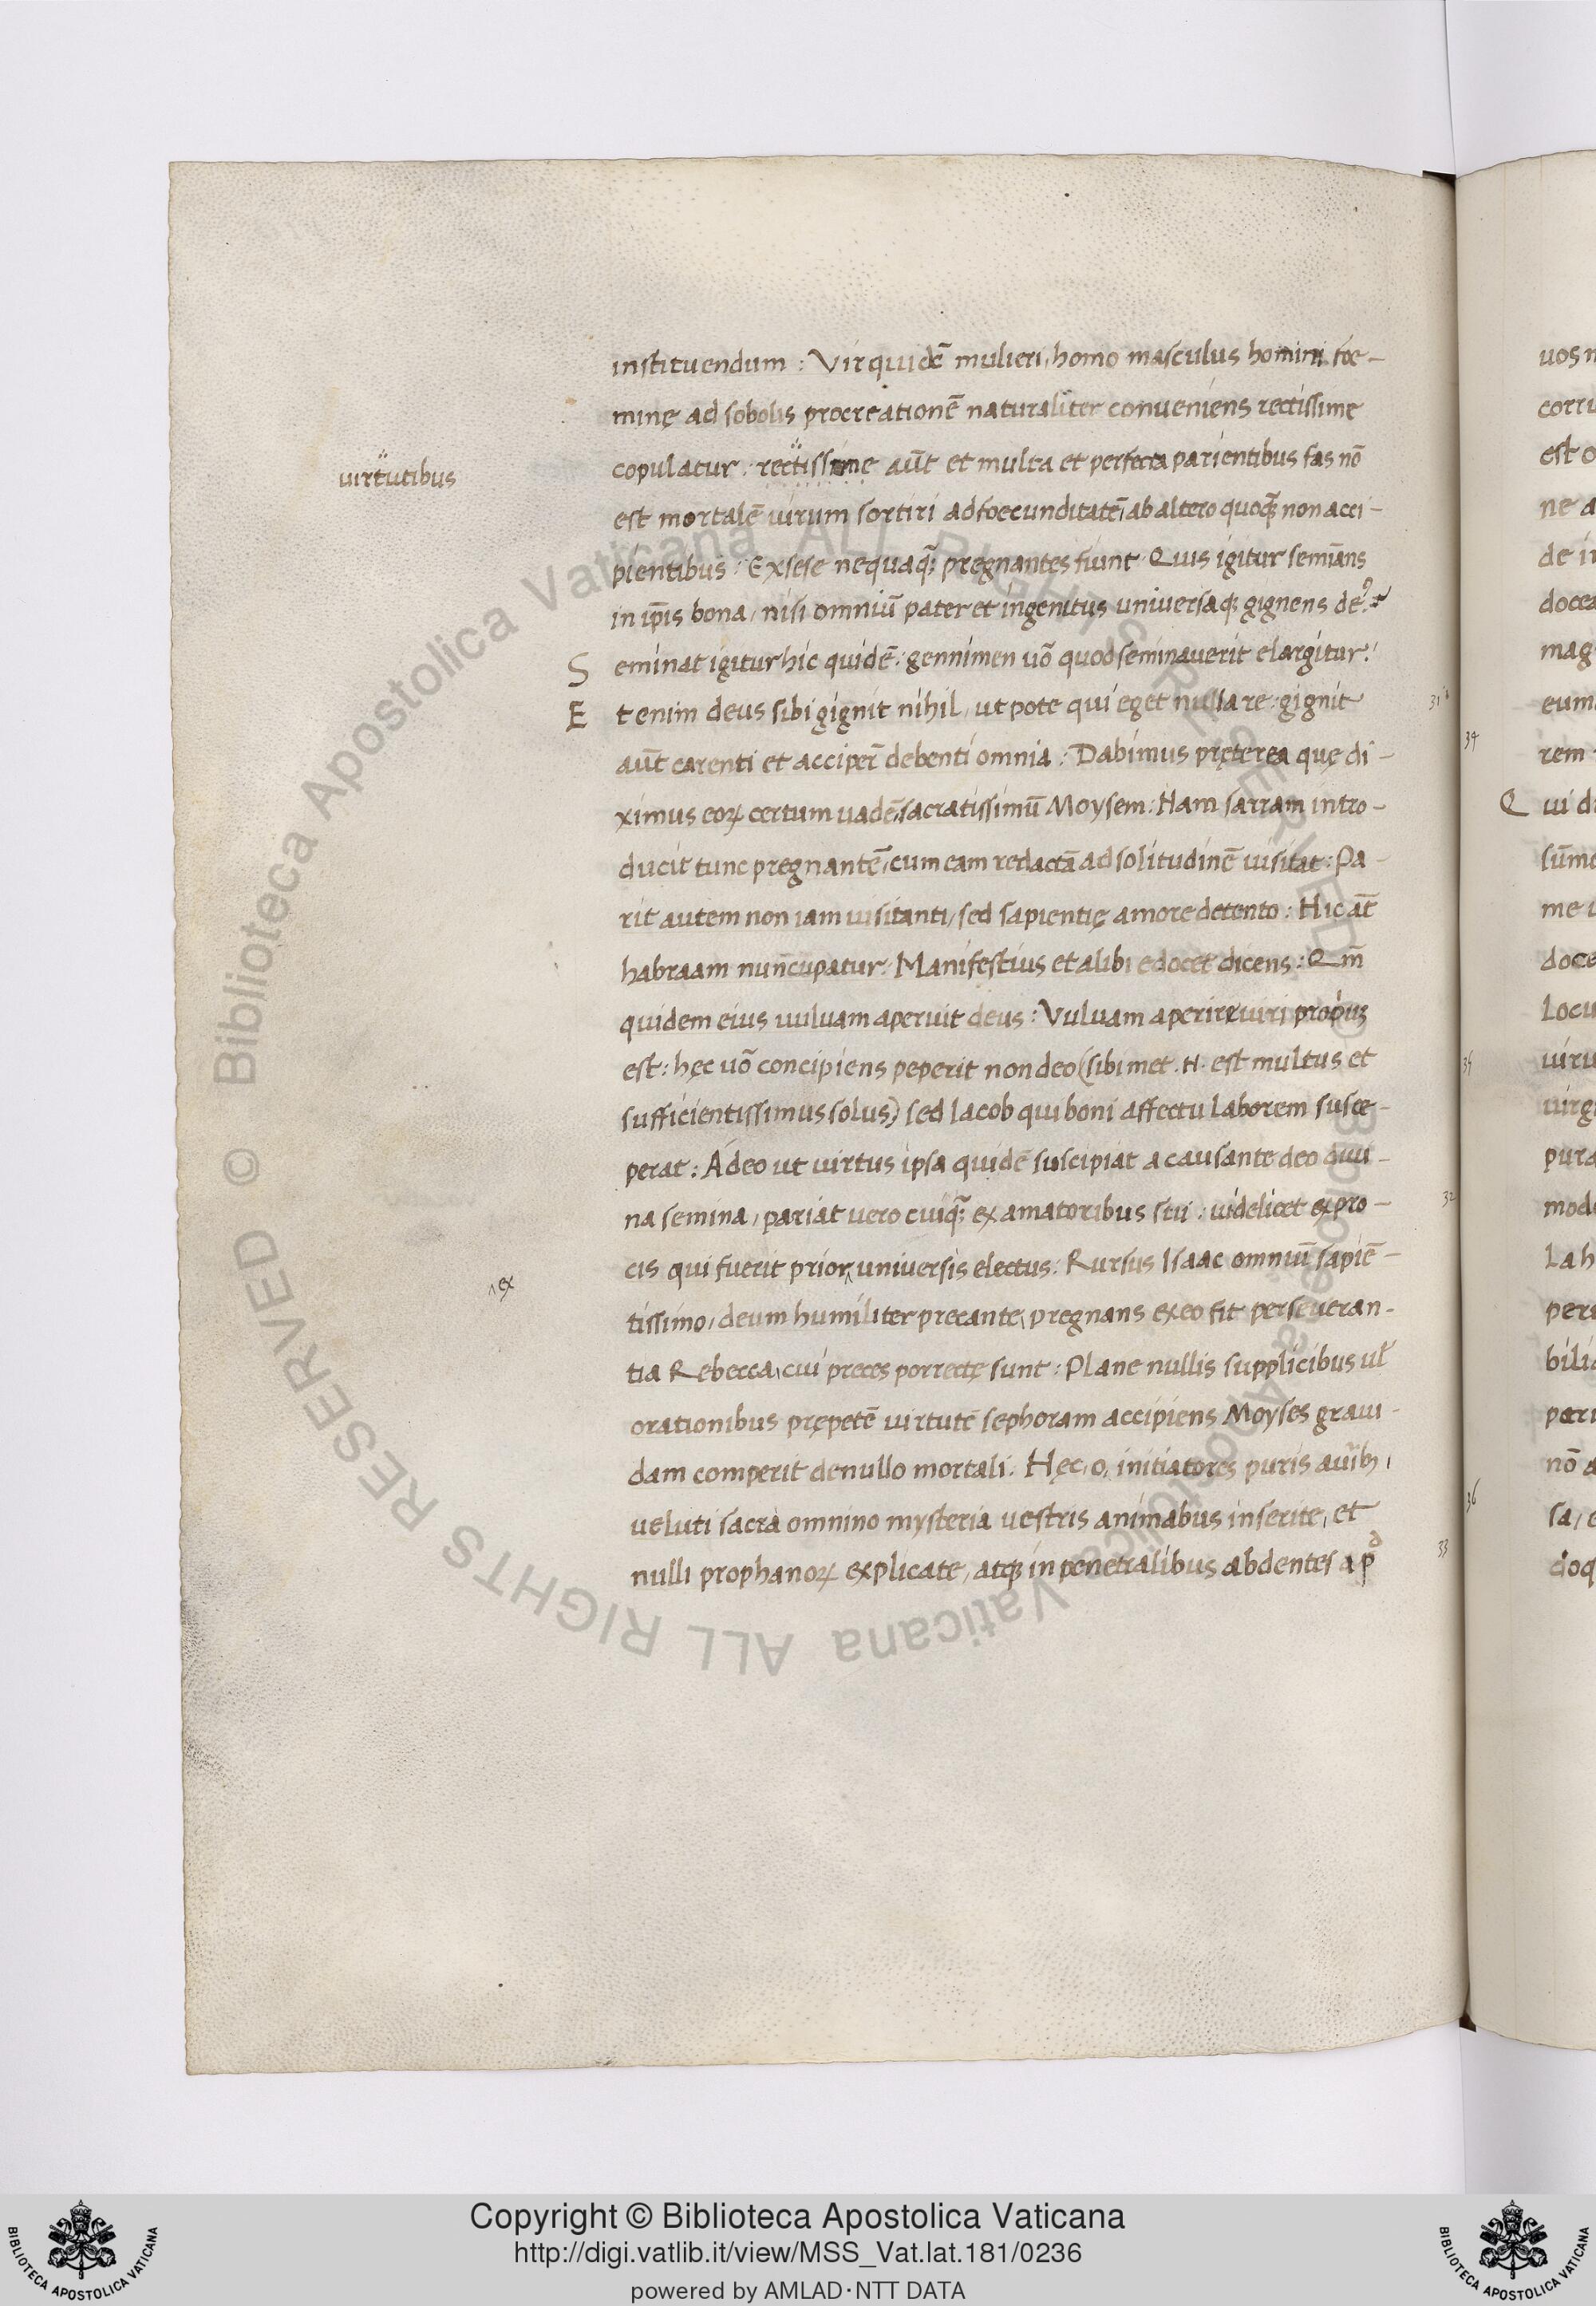 instituendum : Vir quidē mulieri, homo masculus homini foe-
minę ad sobolis procreationē naturaliter conueniens rectissime
copulatur : rectissime aūt et multa et perfecta parientibus fas nō
uirtutibus
est mortalē uirum sortiri ad foecunditatē, ab altero quoq̄ non acci-
pientibus : Ex sese nequaq̄; pregnantes fiunt . Quis igitur semīans
in ip̄is bona, nisi omniū pater et ingenitus universaq; gignens de⁹?
S eminat igitur hic quidē : gennimen uō quod seminauerit elargitur :
E t enim deus sibi gignit nihil, ut pote qui eget nulla re : gignit
31
aūt carenti et acciper̄ debenti omnia : Dabimus pręterea quę di-
ximus eoꝝ certum uadē, sacratissimū Moysem : Nam sarram intro-
ducit tunc pregnantē, cum eam redactā ad solitudinē uisitat : Pa-
rit autem non iam uisitanti, sed sapientię amore detento : Hic āt
habraam nuncupatur . Manifestius et alibi edocet dicens : Qm̄
quidem eius uuluam aperuit deus : Vuluam aperire uiri propius
est : hęc uō concipiens peperit non deo (sibimet .N. est multus et
sufficientissimus solus) sed Iacob qui boni affectu laborem susce-
perat : Adeo ut uirtus ipsa quidē suscipiat a causante deo diui-
na semina, pariat uero cuiq̄; ex amatoribus sui : uidelicet ex pro-
32
cis qui fuerit prior ‸ universis electus : Rursus Isaac omniū sapiē-
‸ ex
tissimo, deum humiliter precante, pregnans ex eo fit perseueran-
tia Rebecca, cui preces porrectę sunt : Plane nullis supplicibus ul̄
orationibus prępetē uirtutē sephoram accipiens Moyses graui-
dam comperit de nullo mortali . Hęc, o, initiatores puris auribꝫ,
ueluti sacra omnino mysteria uestris animabus inserite, et
nulli prophanoꝝ explicate, atq; in penetralibus abdentes ap̄
33
34
35
36
Copyright © Biblioteca Apostolica Vaticana
http://digi.vatlib.it/view/MSS_Vat.lat.181/0236
powered by AMLAD·NTT DATA
BIBLIOTECA APOSTOLICA VATICANA
BIBLIOTECA APOSTOLICA VATICANA